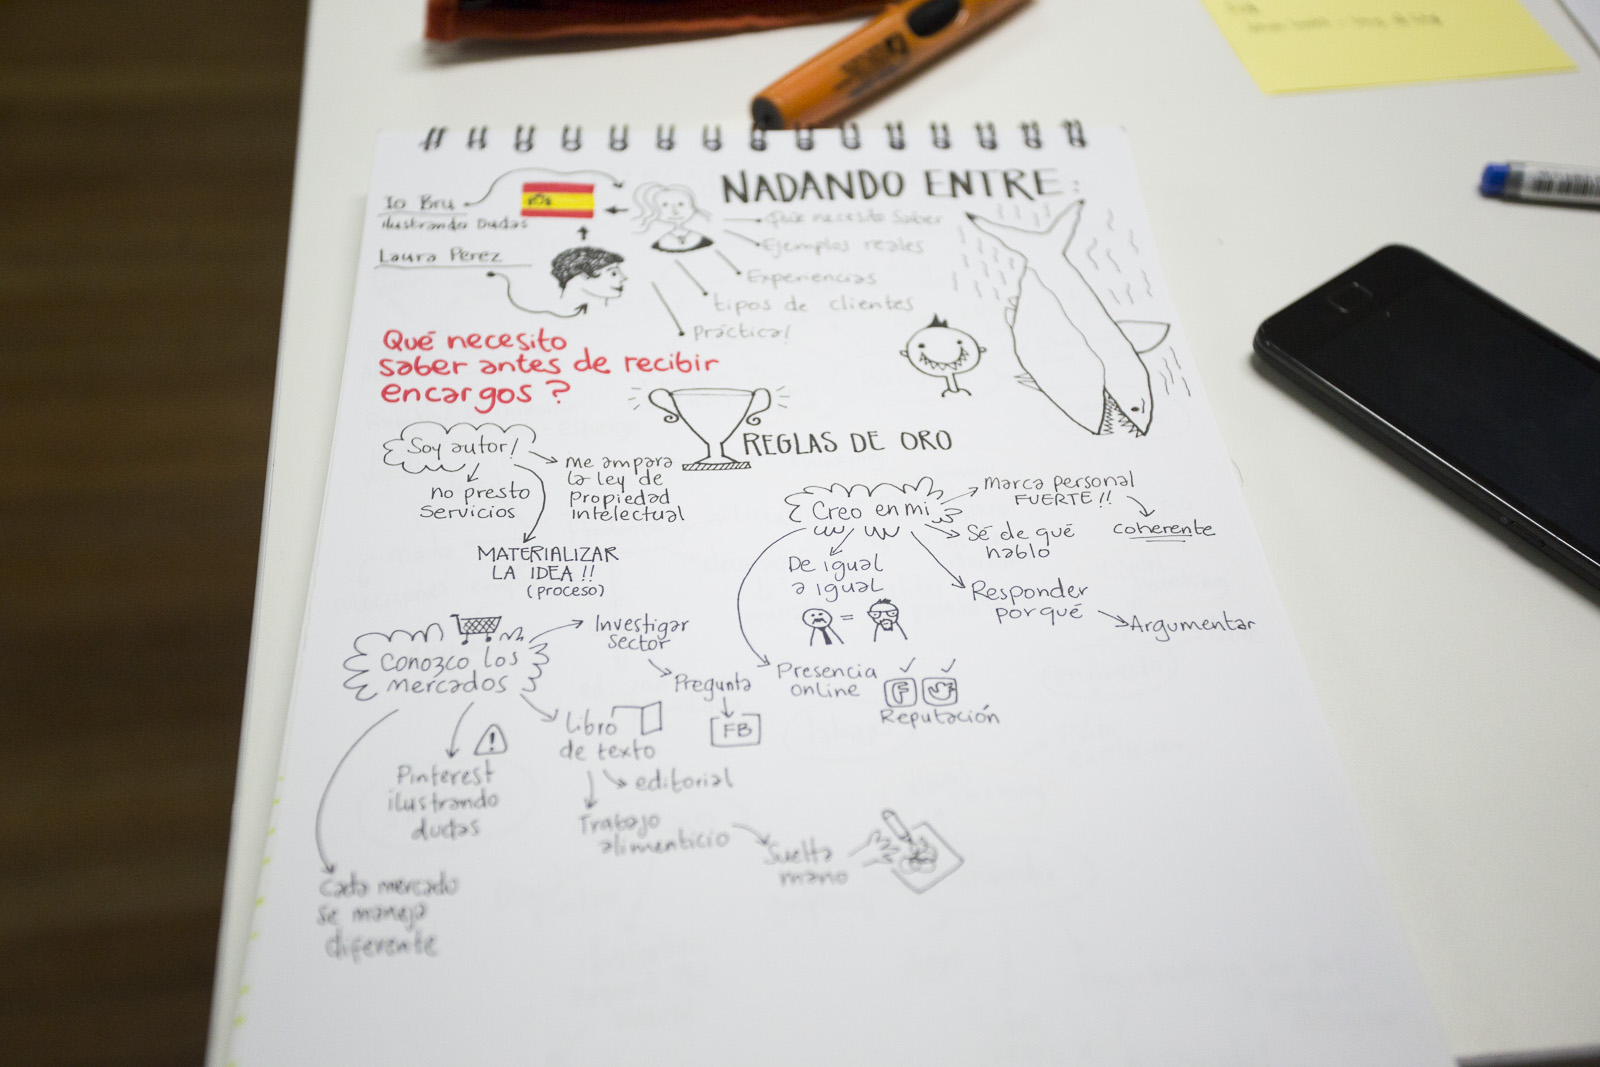 NADANDO ENTRE:
Io Bru
ilustrando Dudas
Laura Perez
Qué necesito Saber
Ejemplos reales
Experiencias
tipos de clientes
Práctica!
Qué necesito
saber antes de recibir
encargos?
REGLAS DE ORO
Soy autor!
no presto
Servicios
Me ampara
la ley de
Propiedad
Intelectual
MATERIALIZAR
LA IDEA!!
(proceso)
Creo en mi
Marca personal
FUERTE!!
coherente
Sé de qué
hablo
De igual
a igual
=
Responder
porqué
Argumentar
Presencia
online
F
Reputación
Conozco los
mercados
Investigar
sector
Pregunta
FB
Libro
de texto
editorial
Trabajo
alimenticio
Suelta
mano
!
Pinterest
ilustrando
dudas
Cada mercado
se maneja
diferente